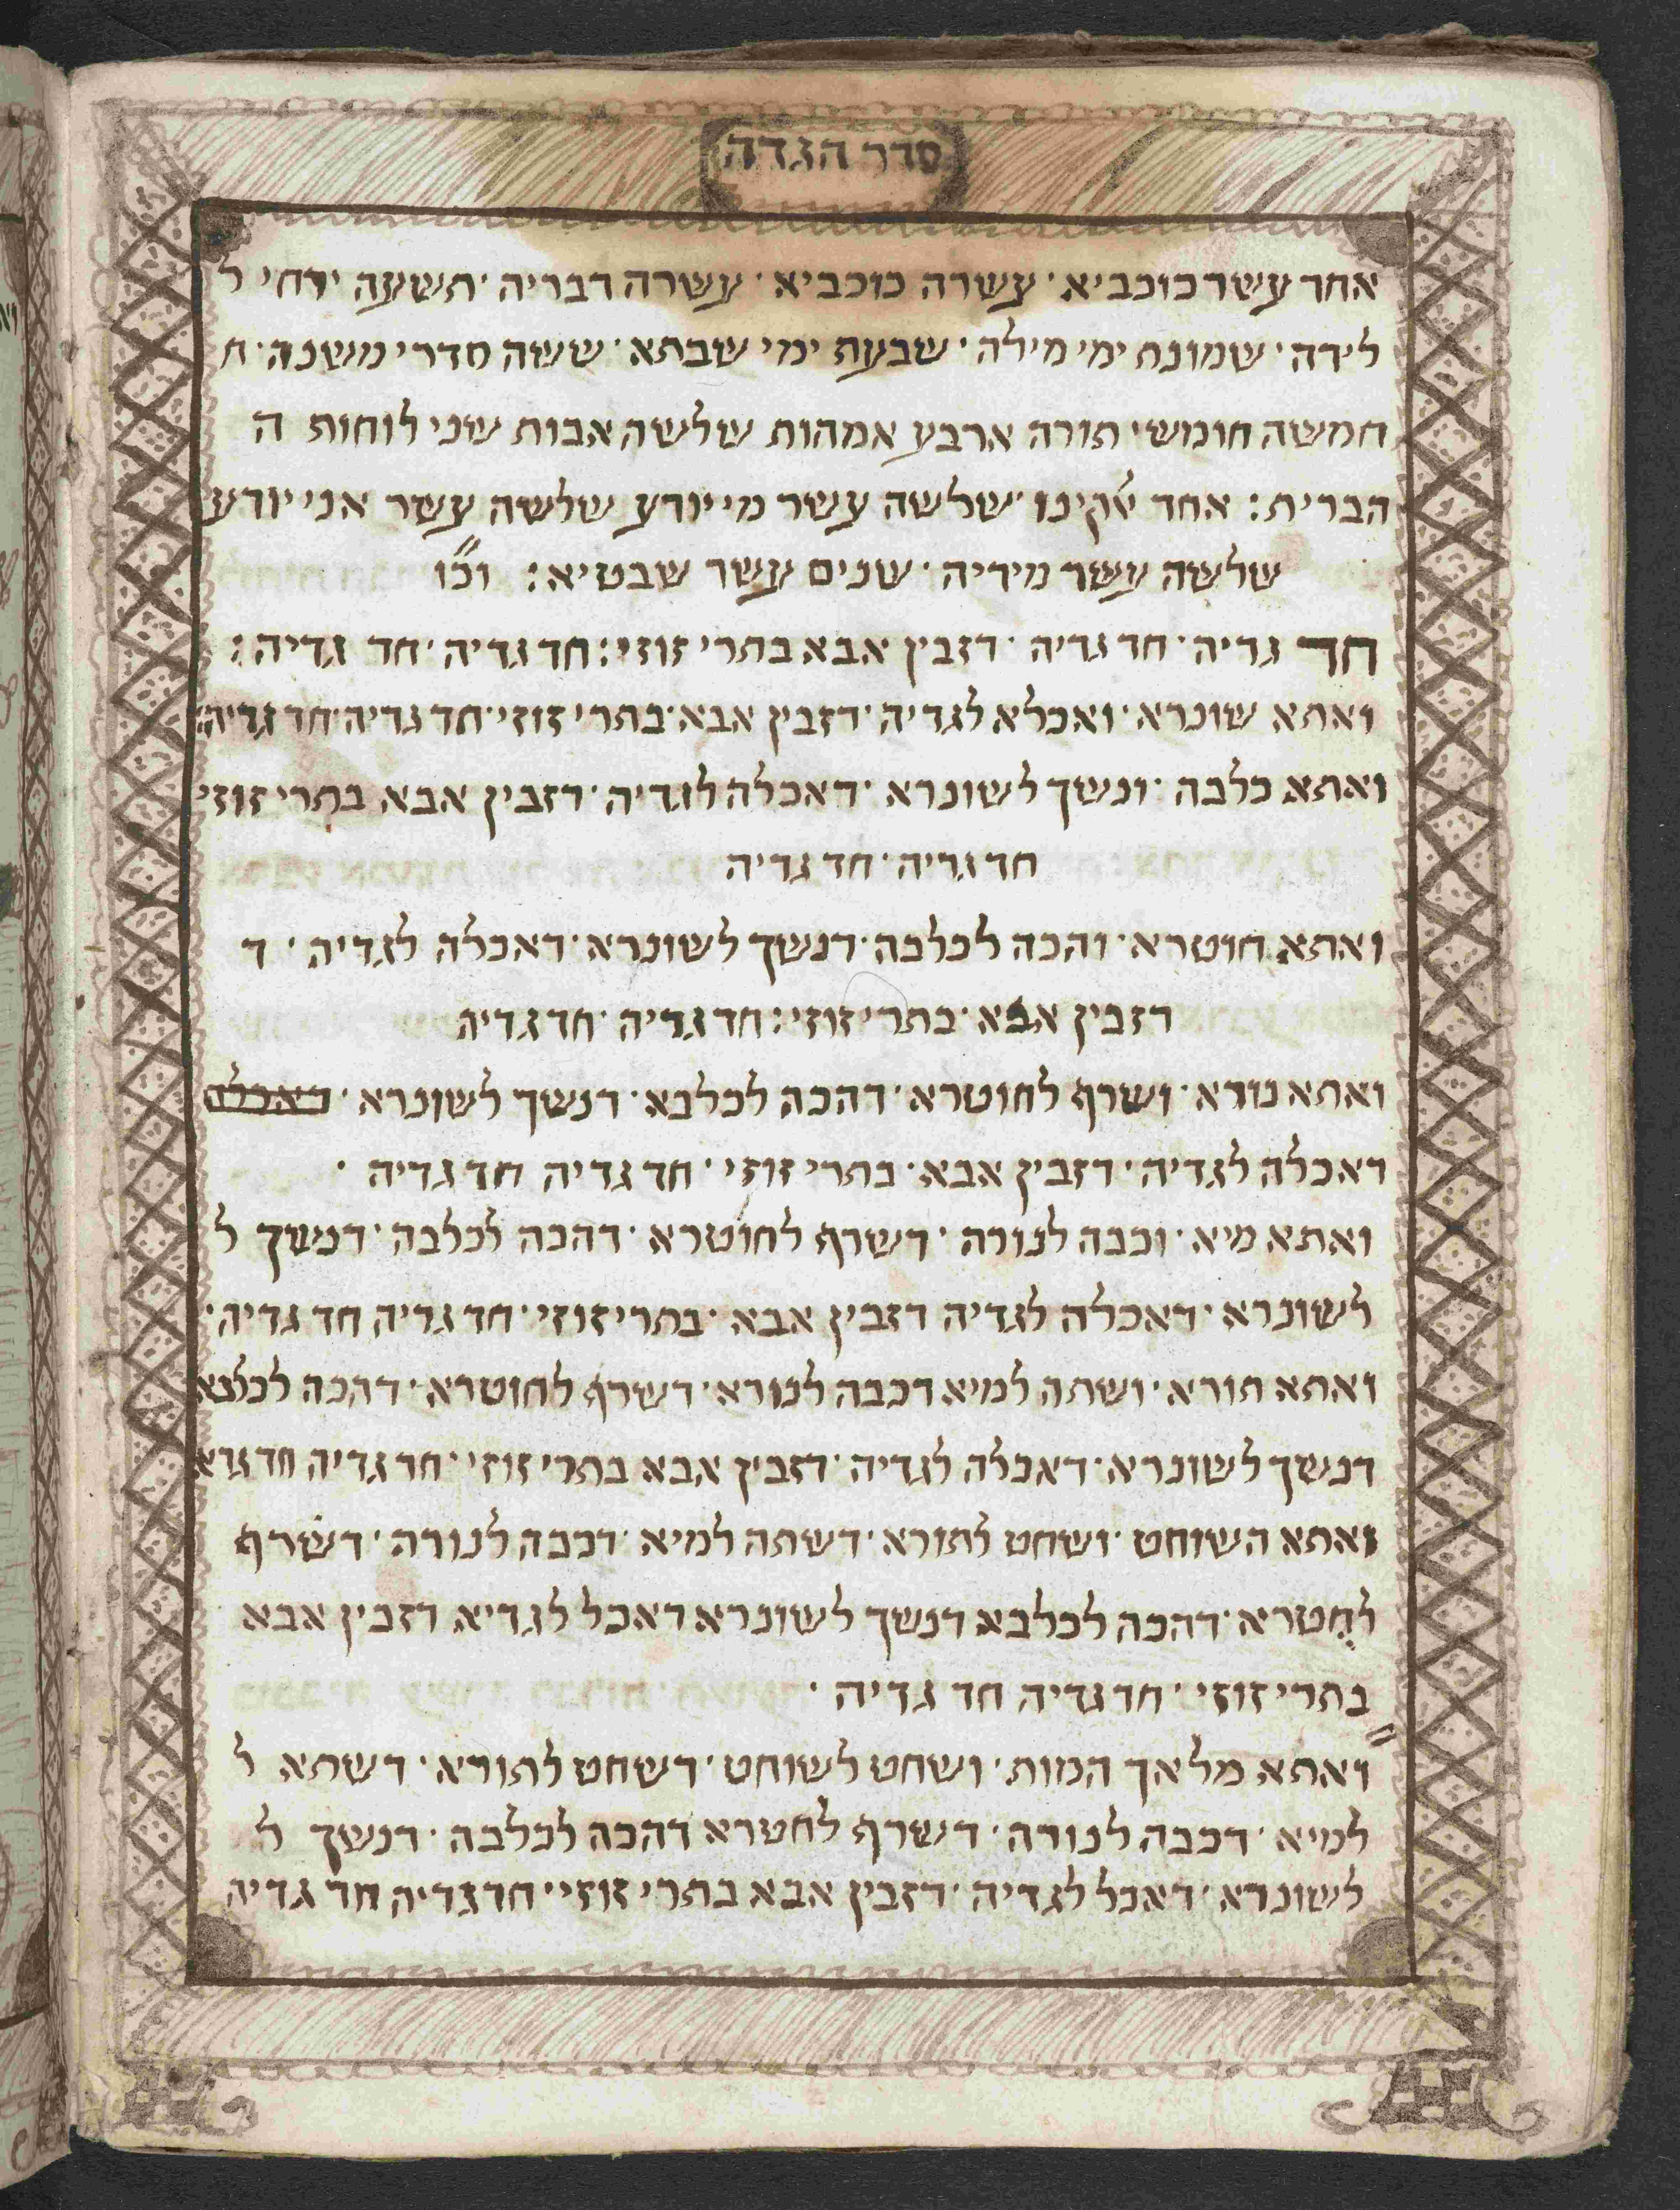 סדר הגדה
אחד עשר כוכביא · עשרה כוכביא · עשרה דבריה · תשעה ירחי ל
לידה · שמונת ימי מילה · שבעת ימי שבתא · ששה סדרי משנה · ח
חמשה חומשי תורה ארבע אמהות שלשה אבות שני לוחות ה
הברית : אחד אלקינו · שלשה עשר מי יודע שלשה עשר אני יודע
שלשה עשר מידיה · שנים עשר שבטיא : וכו
חד גדיה · חד גדיה · דזבין אבא בתרי זוזי : חד גדיה · חד גדיה :
ואתא שונרא · ואכלא לגדיה · דזבין אבא · בתרי זוזי · חד גדיה · חד גדיה :
ואתא כלבה · ונשך לשונרא · דאכלה לגדיה · דזבין אבא בתרי זוזי
חד גדיה · חד גדיה
ואתא חוטרא · והכה לכלבה · דנשך לשונרא · דאכלה לגדיה · ד
דזבין אבא · בתרי זוזי : חד גדיה · חד גדיה
ואתא נורא · ושרף לחוטרא · דהכה לכלבא · דנשך לשונרא · דאכלה
דאכלה לגדיה · דזבין אבא · בתרי זוזי · חד גדיה חד גדיה ·
ואתא מיא · וכבה לנורה · דשרף לחוטרא · דהכה לכלבה · דנשך ל
לשונרא · דאכלה לגדיה דזבין אבא · בתרי זוזי · חד גדיה חד גדיה ·
ואתא תורא · ושתה למיא דכבה לנורא · דשרף לחוטרא · דהכה לכלבא
דנשך לשונרא · דאכלה לגדיה · דזבין אבא בתרי זוזי · חד גדיה חד גדיא
ואתא השוחט · ושחט לתורא · דשתה למיא · דכבה לנורה · דשרף
לחטרא · דהכה לכלבא דנשך לשונרא דאכל לגדיא דזבין אבא
בתרי זוזי · חד גדיה חד גדיה ·
ואתא מלאך המות · ושחט לשוחט · דשחט לתורא · דשתא ל
למיא · דכבה לנורה · דשרף לחטרא דהכה לכלבה · דנשך ל
לשונרא · דאכל לגדיה · דזבין אבא בתרי זוזי · חד גדיה חד גדיה